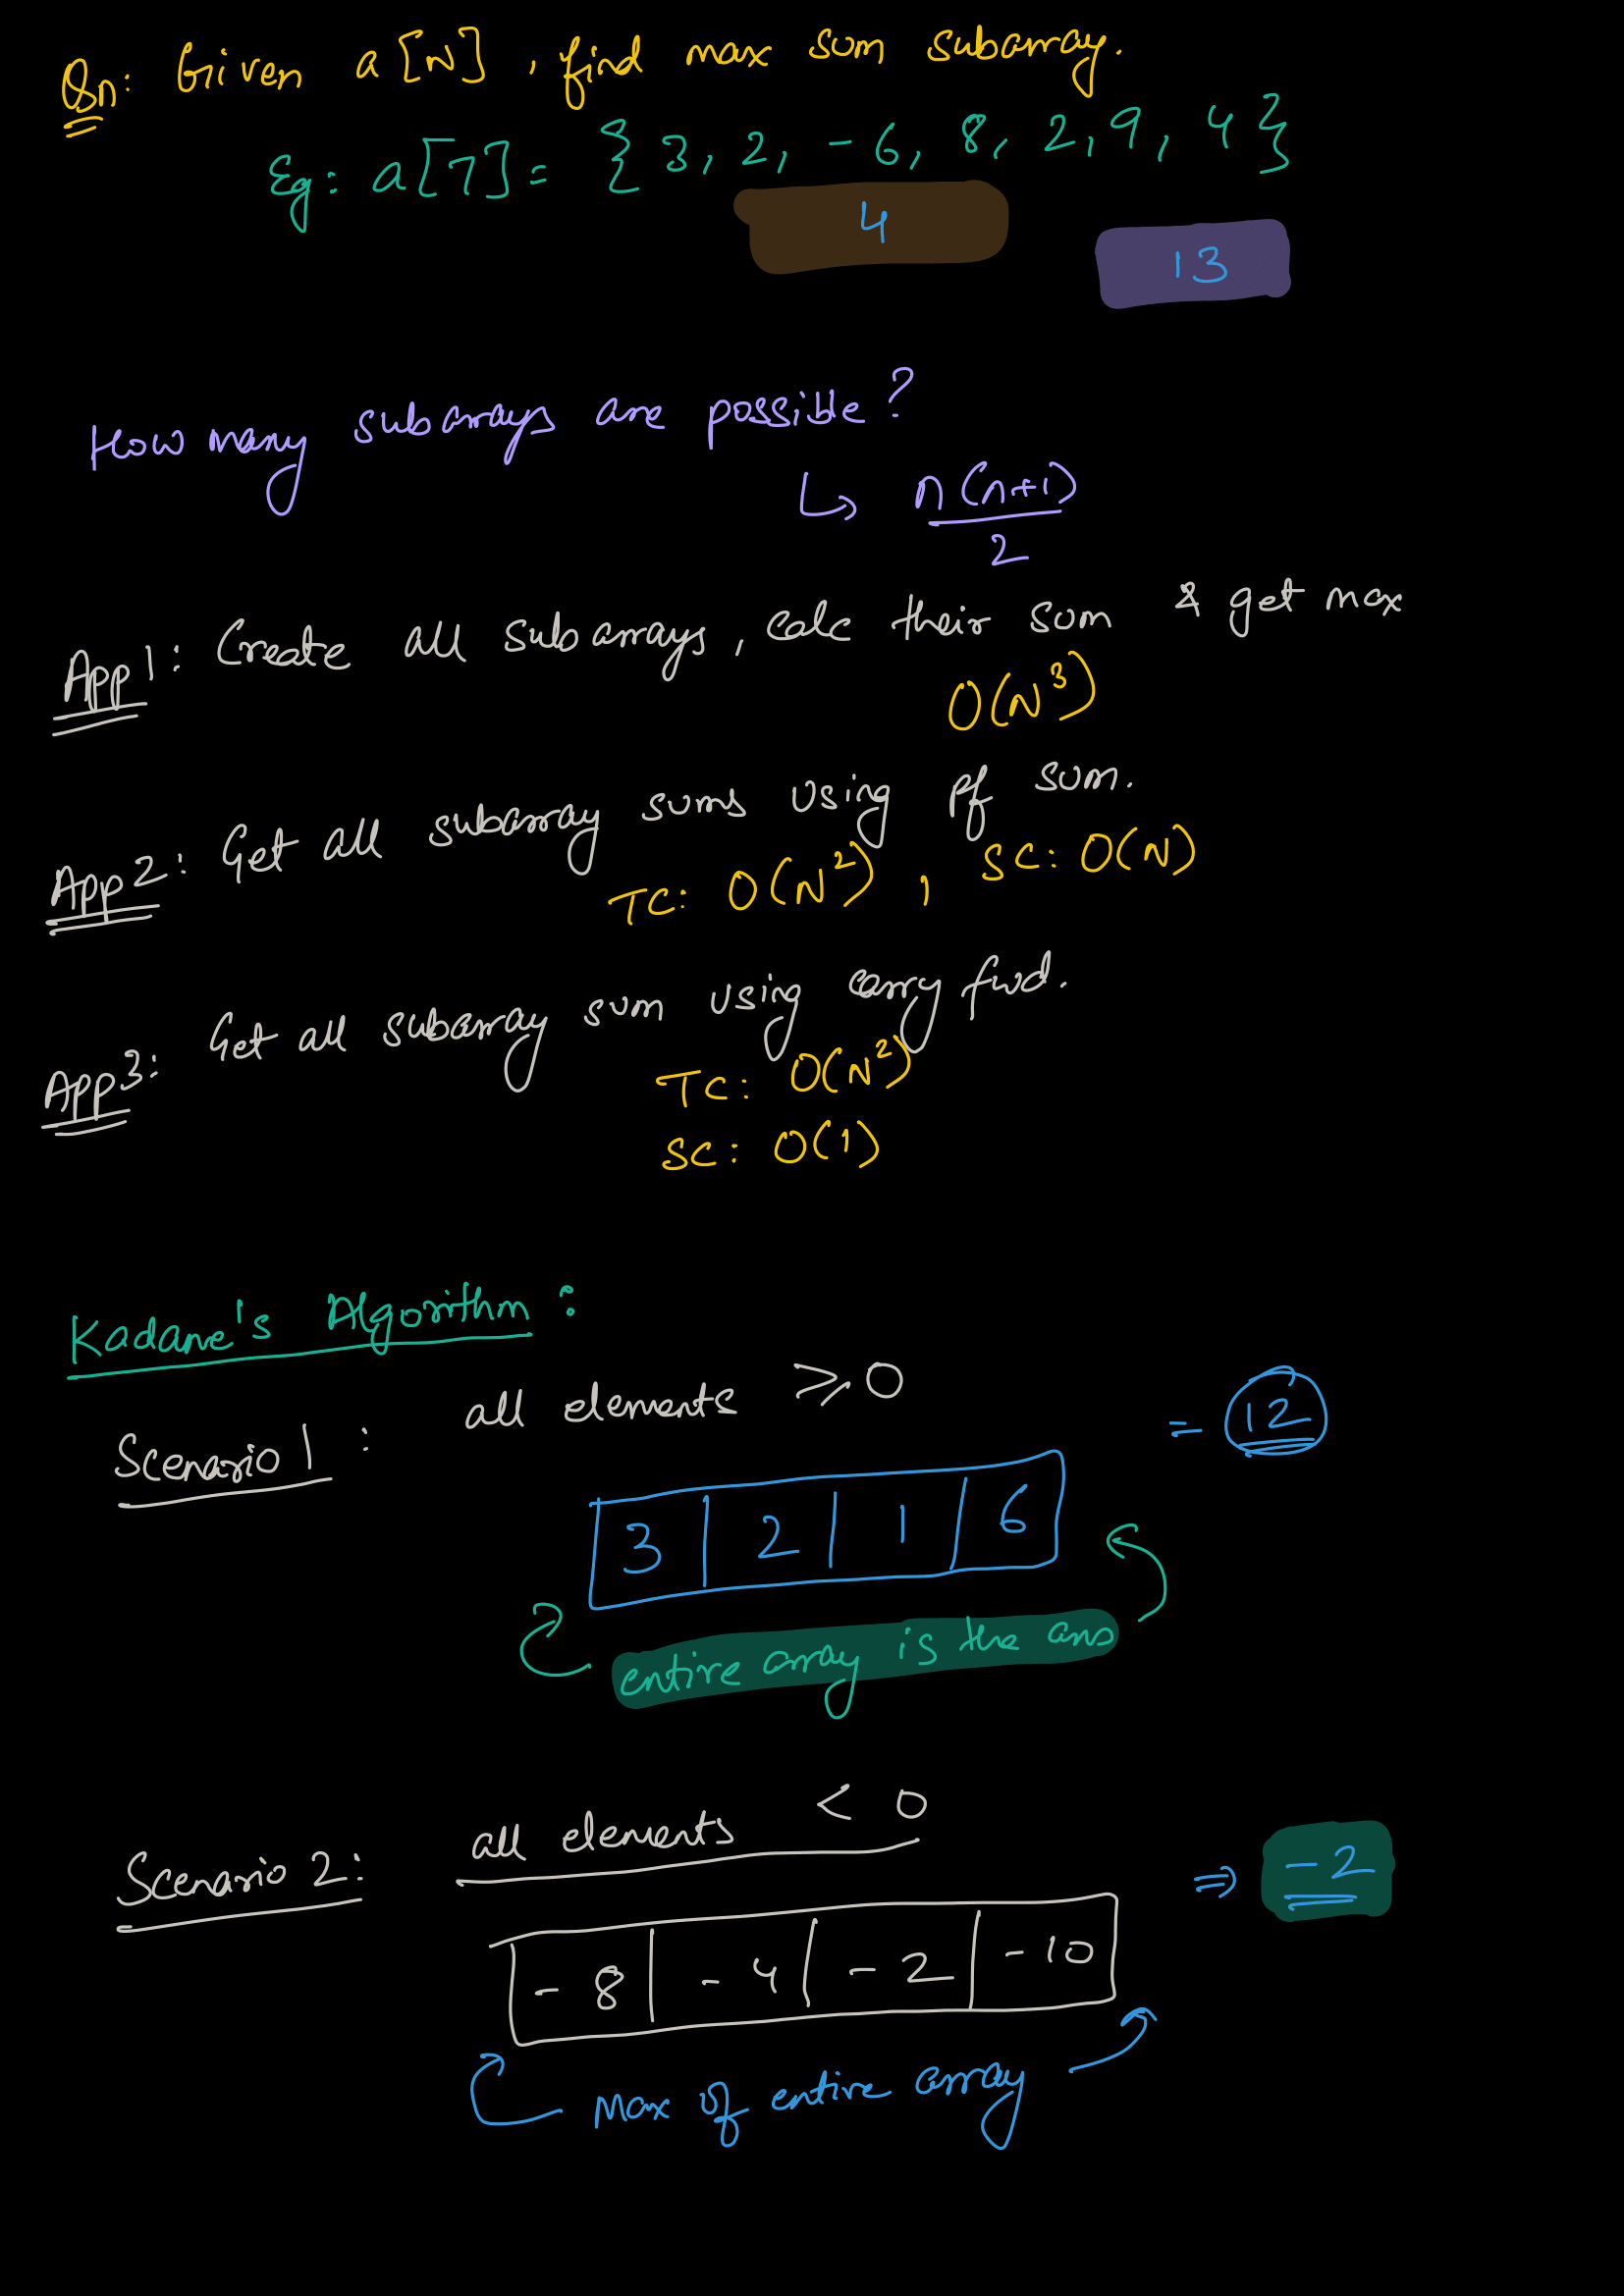 Qn: Given a[N], find max sum subarray.
Eg: a[7] = {3, 2, -6, 8, 2, 9, 4}
4
13
How many subarrays are possible?
↳ n(n+1)
2
App1: Create all subarrays, calc their sum & get max
O(N³)
App2: Get all subarray sums using pf sum.
TC: O(N²), SC: O(N)
App3: Get all subarray sum using carry fwd.
TC: O(N²)
SC: O(1)
Kadane's Algorithm:
Scenario 1: all elements ≥ 0
= 12
3 | 2 | 1 | 6
entire array is the ans
Scenario 2: all elements < 0
⇒ -2
-8 | -4 | -2 | -10
Max of entire array